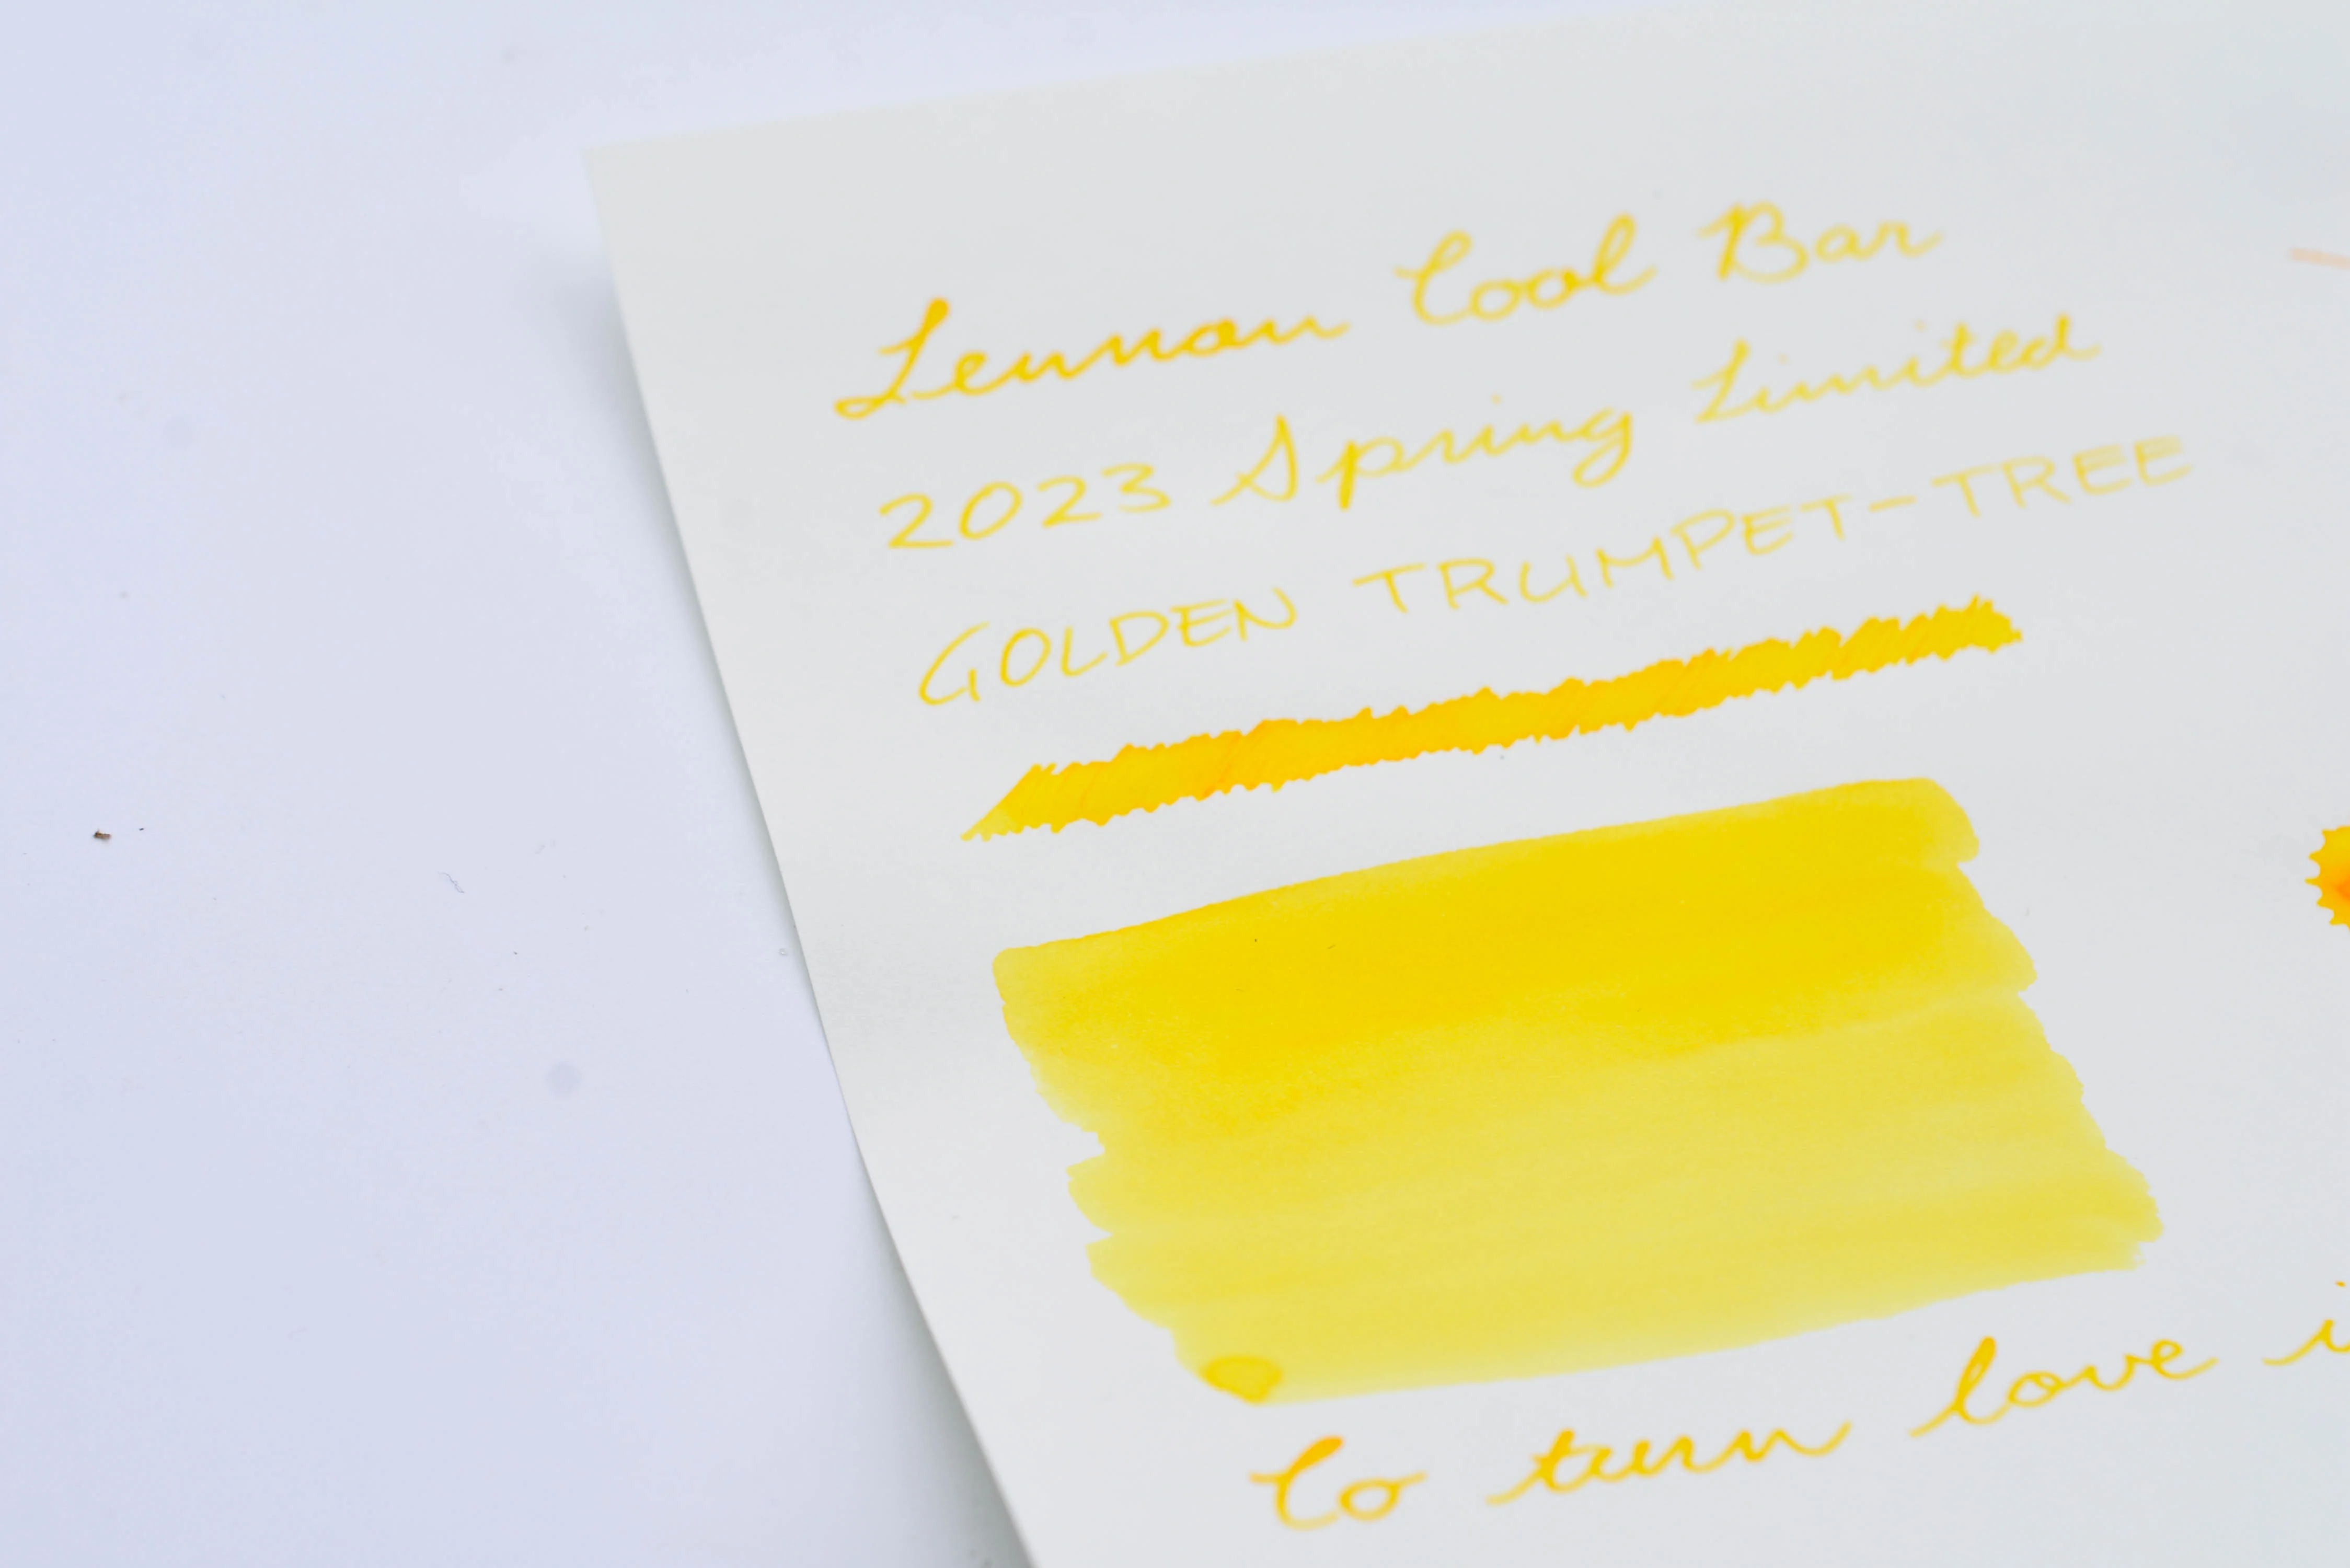 Lennon Tool Bar
2023 Spring Limited
GOLDEN TRUMPET-TREE
To turn love